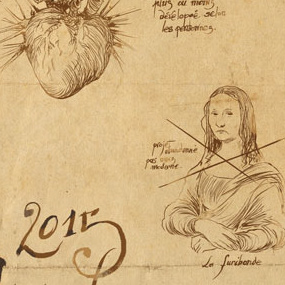 plus ou moins
développé, selon
les personnes.
projet abandonné
pas assez
moderne
2015
La furibonde